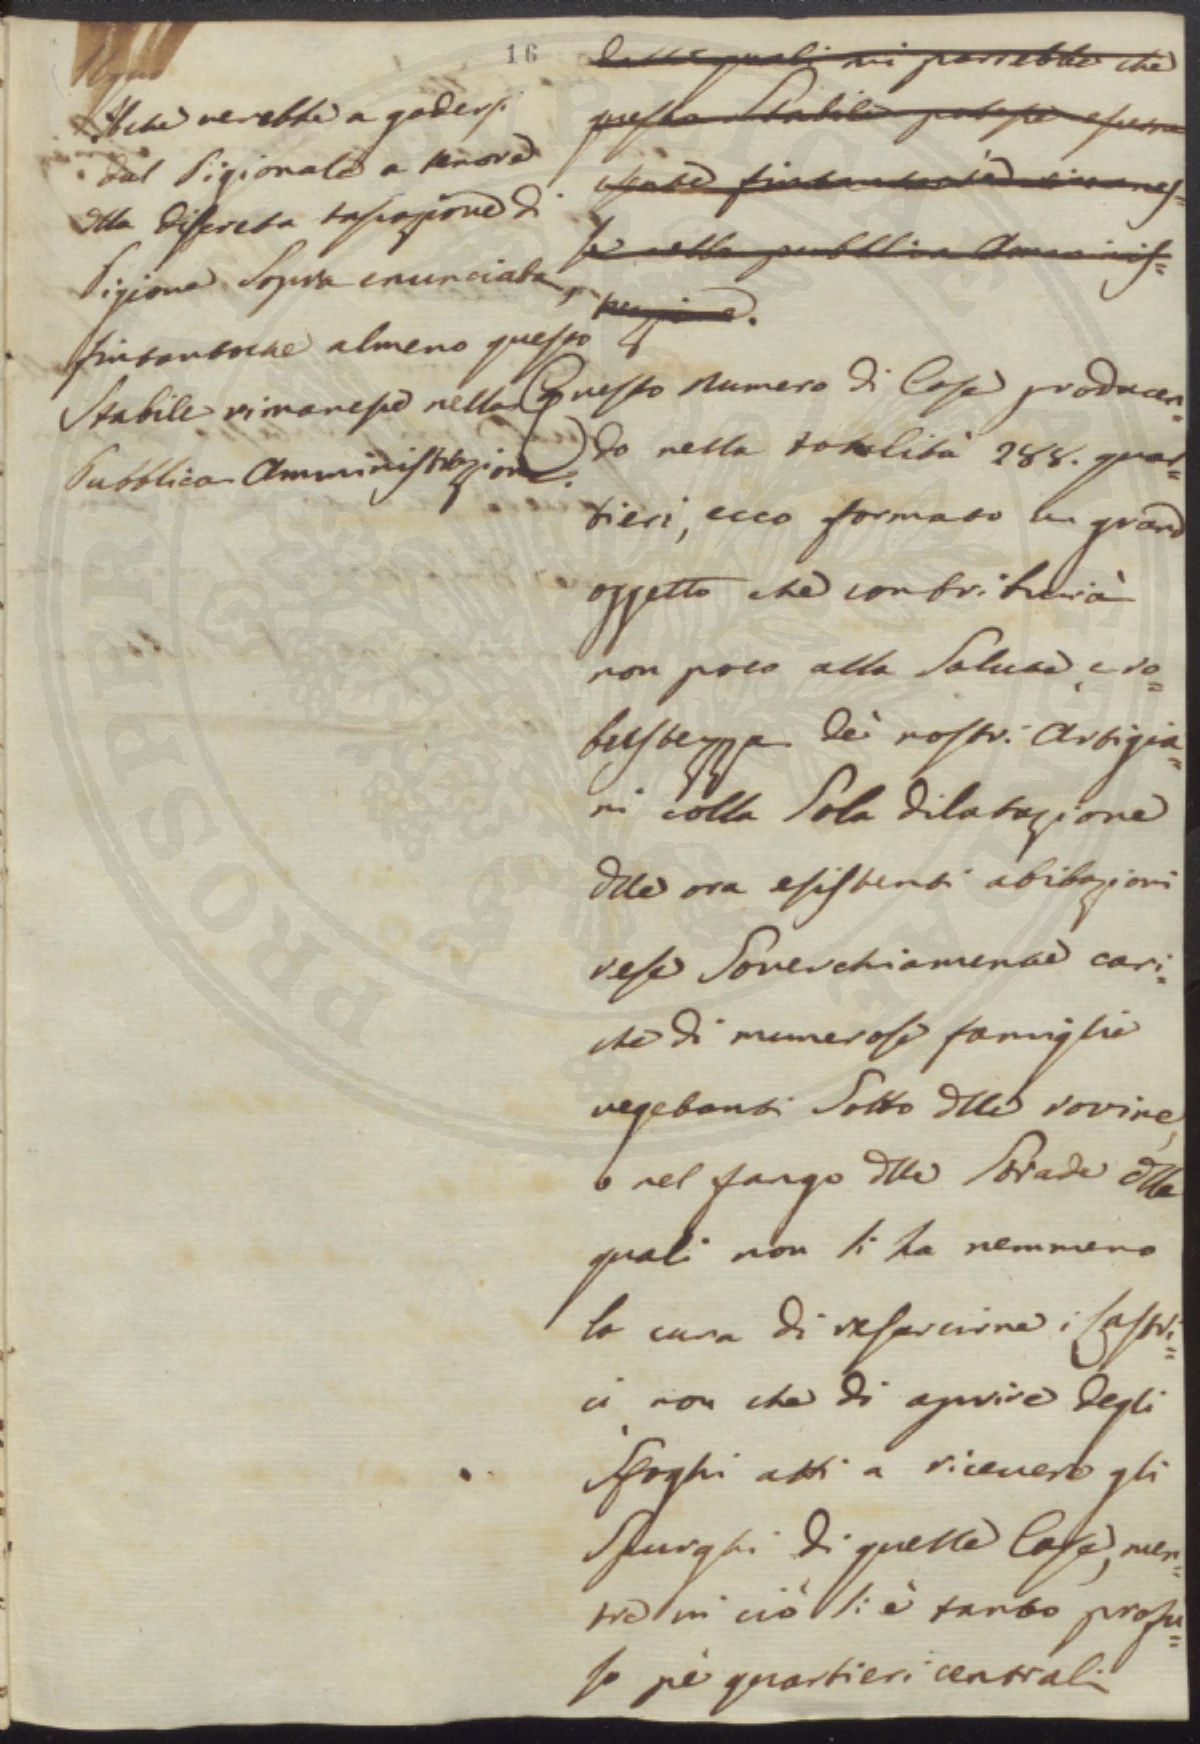 16
Il che verebbe a godersi
dal Pigionale a tenore
dlla discreta tassazione di
Pigione Sopra enunciata,
fintantoche almeno questo
Stabile rimanesse nella
Pubblica Amministrazione.
dalle quali mi parrebbe che
questo Stabile potesse essere
esente fintantoche rimanes=
se nella pubblica Amminis=
trazione.
Questo Numero di Case producen=
do nella totalità 288. quar=
tieri, ecco formato un grand
oggetto che contribuirà
non poco alla Salute, e ro=
bustezza de' nostri Artigia=
ni colla Sola dilatazione
dlle ora esistenti abitazioni
rese Soverchiamente cari=
che di numerose famiglie
vegetanti Sotto dlle rovine,
o nel fango dlle Strade dlle
quali non si ha nemmeno
la cura di resarcirne i Lastri=
ci, non che di aprire degli
Sfoghi atti a ricevere gli
Spurghi di quelle Case, men=
tre in ciò si è tanto profu=
so pe' quartieri centrali
PROSPERI PUBLICAE